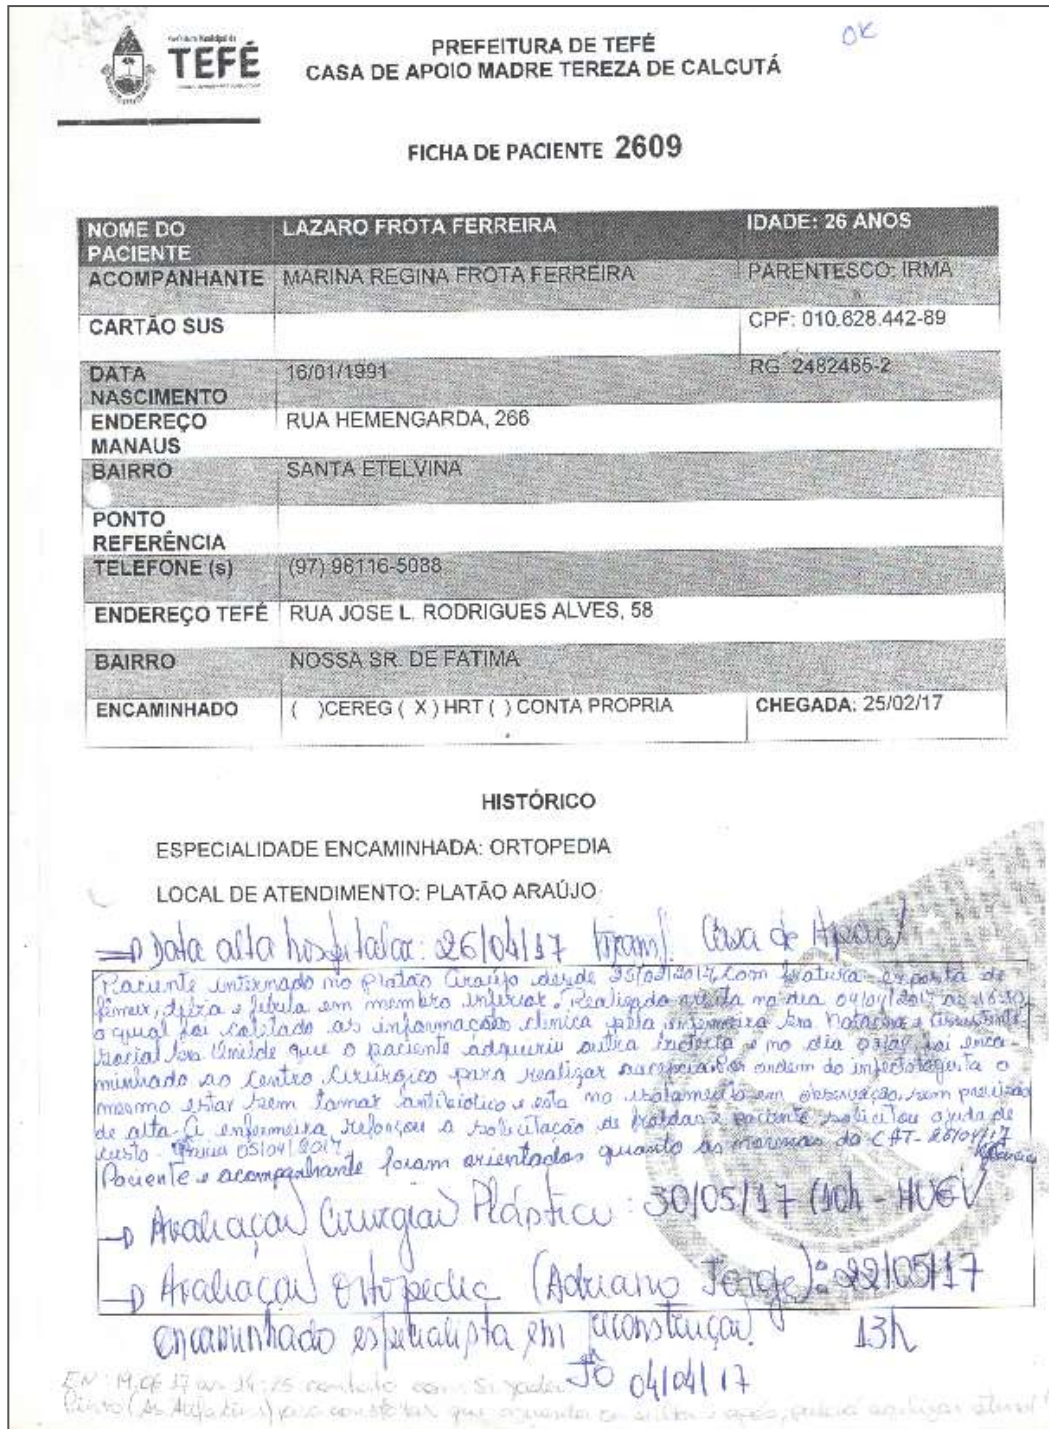 OK
Prefeitura Municipal de
TEFÉ
PREFEITURA DE TEFÉ
CASA DE APOIO MADRE TEREZA DE CALCUTÁ
FICHA DE PACIENTE 2609
NOME DO PACIENTE LAZARO FROTA FERREIRA IDADE: 26 ANOS
ACOMPANHANTE MARINA REGINA FROTA FERREIRA PARENTESCO: IRMÃ
CARTÃO SUS CPF: 010.628.442-89
DATA NASCIMENTO 16/01/1991 RG: 2482465-2
ENDEREÇO MANAUS RUA HEMENGARDA, 266
BAIRRO SANTA ETELVINA
PONTO REFERÊNCIA
TELEFONE (s) (97) 98116-5088
ENDEREÇO TEFÉ RUA JOSE L. RODRIGUES ALVES, 58
BAIRRO NOSSA SR. DE FATIMA
ENCAMINHADO ( )CEREG ( X ) HRT ( ) CONTA PROPRIA CHEGADA: 25/02/17
HISTÓRICO
ESPECIALIDADE ENCAMINHADA: ORTOPEDIA
LOCAL DE ATENDIMENTO: PLATÃO ARAÚJO
Data alta hospitalar: 26/04/17 Casa de Apoio
Paciente internado no Platão Araújo desde 25/02/2017, com fratura exposta de
fêmur, tíbia e fíbula em membro inferior. Realizada visita no dia 04/04/2017 as 16:30
o qual foi coletado as informações clinica pela enfermeira Sra Natacha e assistente
social Sra Umilde que o paciente adquiriu outra bactéria e no dia 03/04 foi enca-
minhado ao centro cirúrgico para realizar ordem do infectologista o
mesmo estar sem tomar antibiótico e esta no isolamento em observação, sem previsão
de alta. A enfermeira reforçou a solicitação de fraldas e paciente solicitou ajuda de
custo - 05/04/2017
Paciente e acompanhante foram orientados quanto as normas da CAT - 26/04/17
Avaliação Cirurgião Plástica: 30/05/17 (10h - HUGV
Avaliação Ortopedia (Adriano Jorge): 22/05/17
encaminhado especialista em reconstrução. 13h
04/04/17